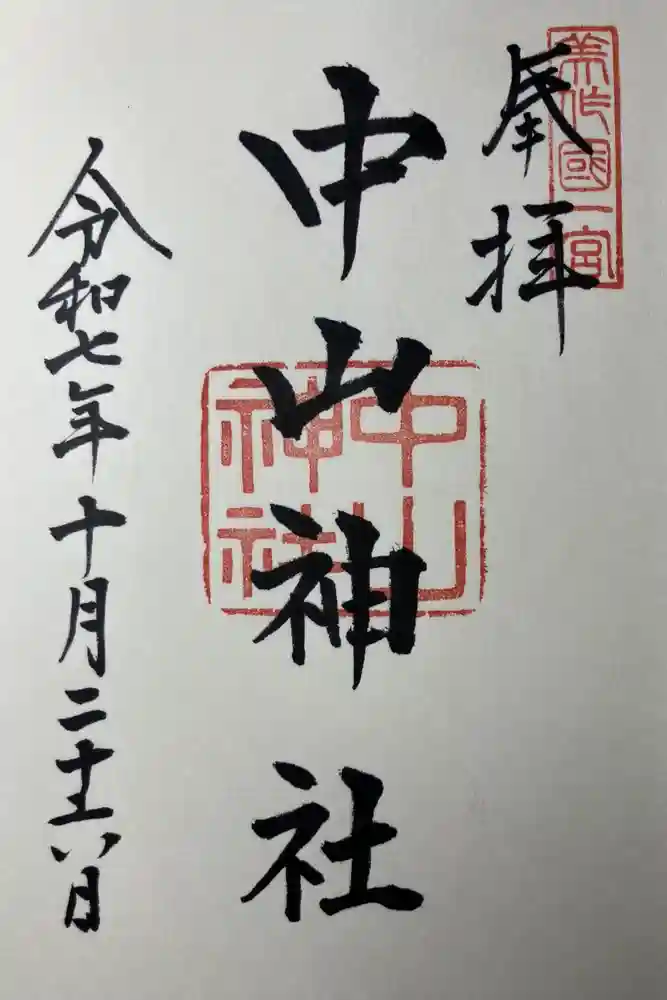 美作國一宮
奉拝
中山神社
中山神社
令和七年十月二十六日